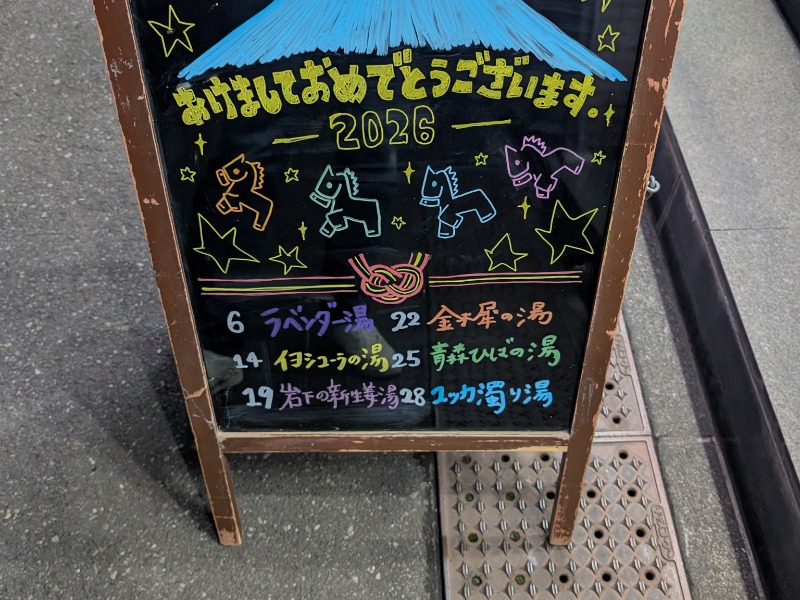 あけましておめでとうございます。
2026
6 ラベンダー湯 22 金木犀の湯
14 イヨシコーラの湯 25 青森ひばの湯
19 岩下の新生姜湯 28 ユッカ濁り湯